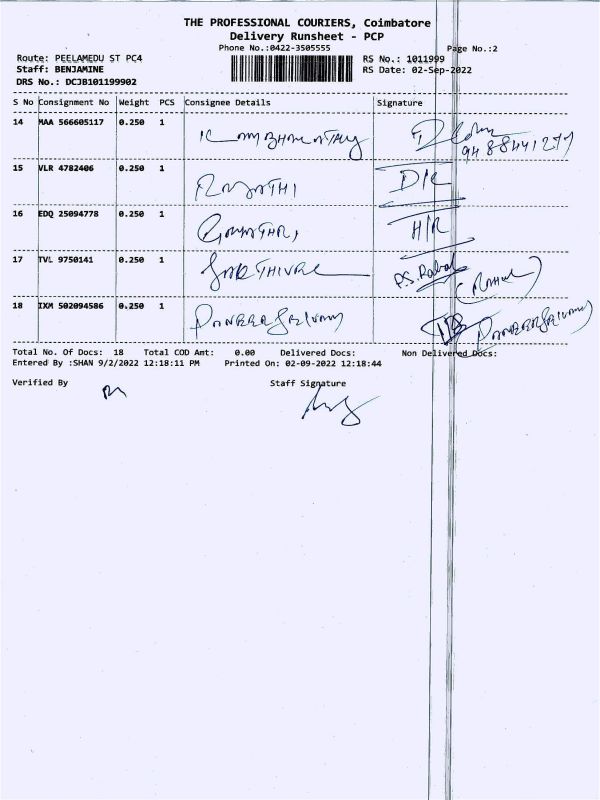 THE PROFESSIONAL COURIERS, Coimbatore
Delivery Runsheet - PCP
Phone No.:0422-3505555
Page No.:2
Route: PEELAMEDU ST PC4
RS No.: 1011999
Staff: BENJAMINE
RS Date: 02-Sep-2022
DRS No.: DCJB101199902
S No Consignment No Weight PCS Consignee Details Signature
14 MAA 566605117 0.250 1
9488441277
15 VLR 4782406 0.250 1 D/R
16 EDQ 25094778 0.250 1 H/R
17 TVL 9750141 0.250 1 P.S. Rahul (RAHUL)
18 IXM 502094586 0.250 1 PANNEERSELVAM PANNEERSELVAM
Total No. Of Docs: 18 Total COD Amt: 0.00 Delivered Docs: Non Delivered Docs:
Entered By :SHAN 9/2/2022 12:18:11 PM Printed On: 02-09-2022 12:18:44
Verified By Staff Signature